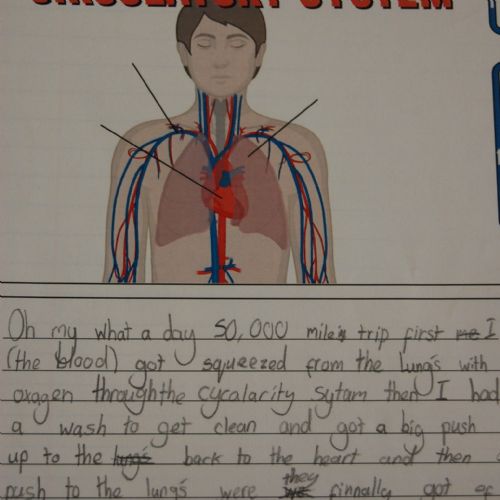 CIRCULATORY SYSTEM
Oh my what a day 50,000 mile's trip first me I
(the blood) got squeezed from the lung's with
oxagen through the cycalarity sytam then I had
a wash to get clean and got a big push
up to the lung's back to the heart and then
they
push to the lung's were we finnally got